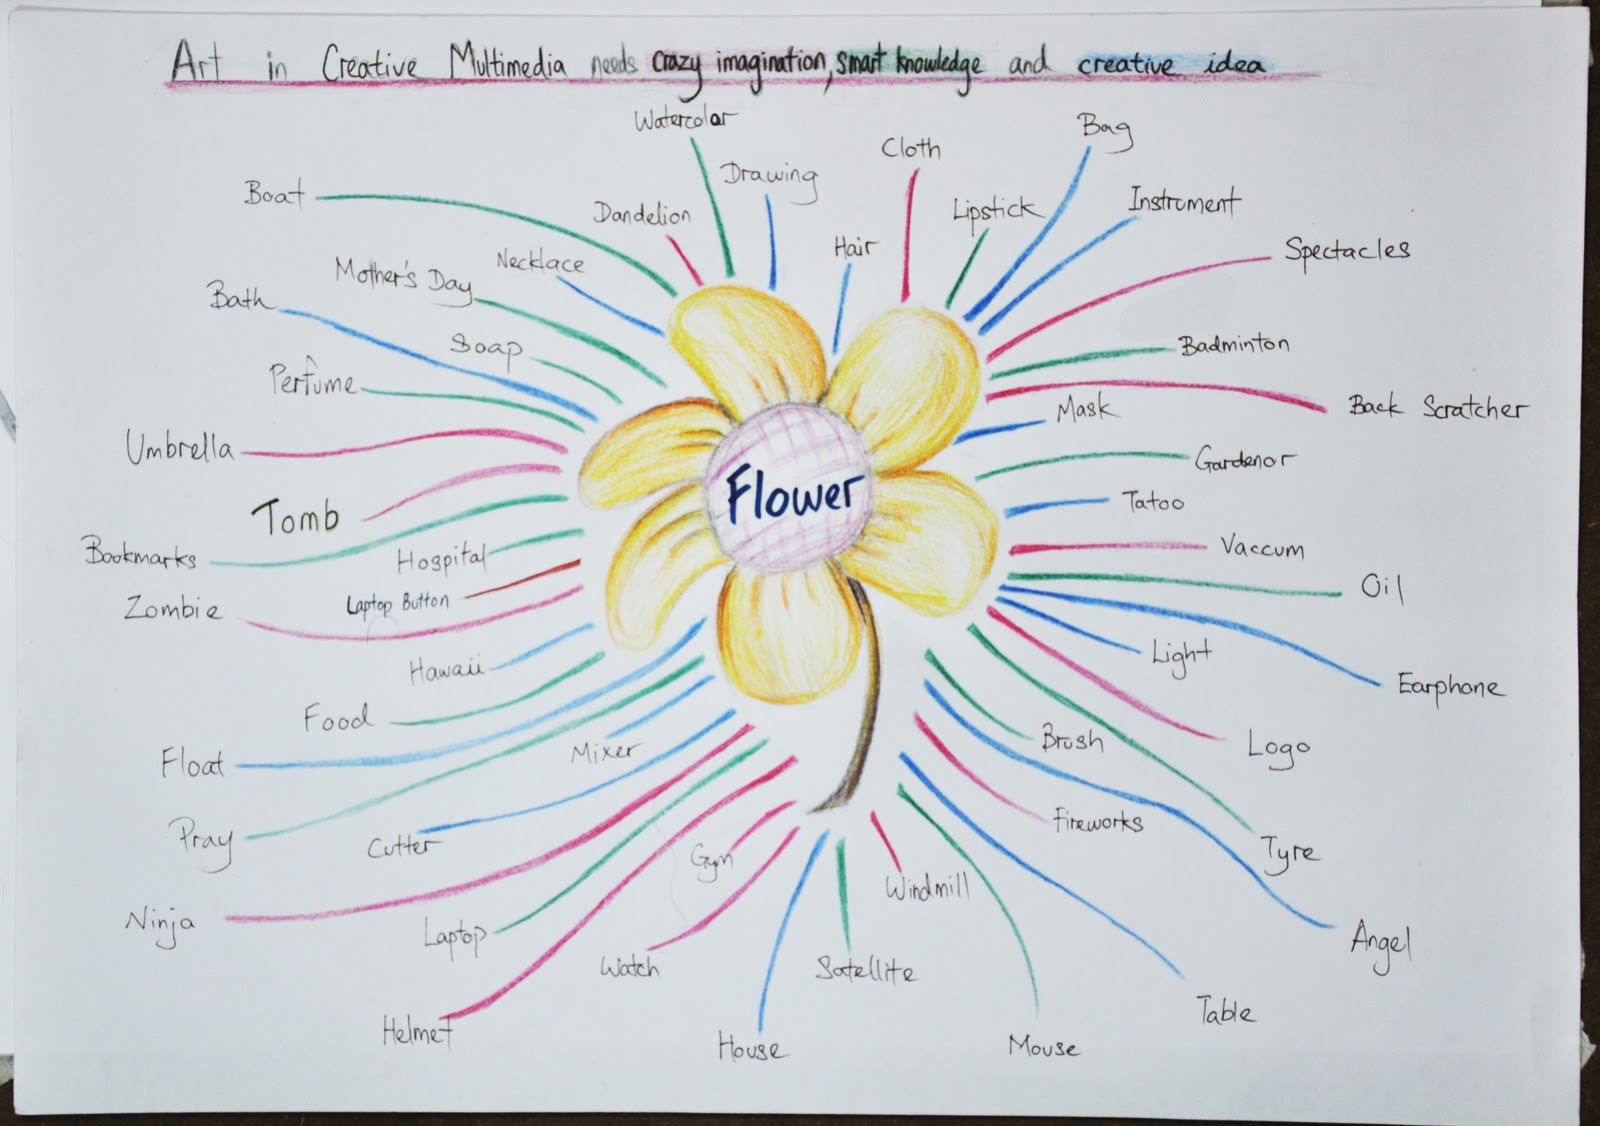 Art in Creative Multimedia needs crazy imagination, smart knowledge and creative idea
Watercolor
Bag
Cloth
Drawing
Boat
Dandelion
Lipstick
Instrument
Hair
Spectacles
Necklace
Mother's Day
Bath
Soap
Badminton
Perfume
Mask
Back Scratcher
Umbrella
Gardenor
Flower
Tatoo
Tomb
Bookmarks
Hospital
Vaccum
Oil
Laptop Button
Zombie
Light
Hawaii
Earphone
Food
Brush
Logo
Mixer
Float
Fireworks
Pray
Cutter
Tyre
Gym
Windmill
Ninja
Laptop
Angel
Watch
Satellite
Table
Helmet
House
Mouse